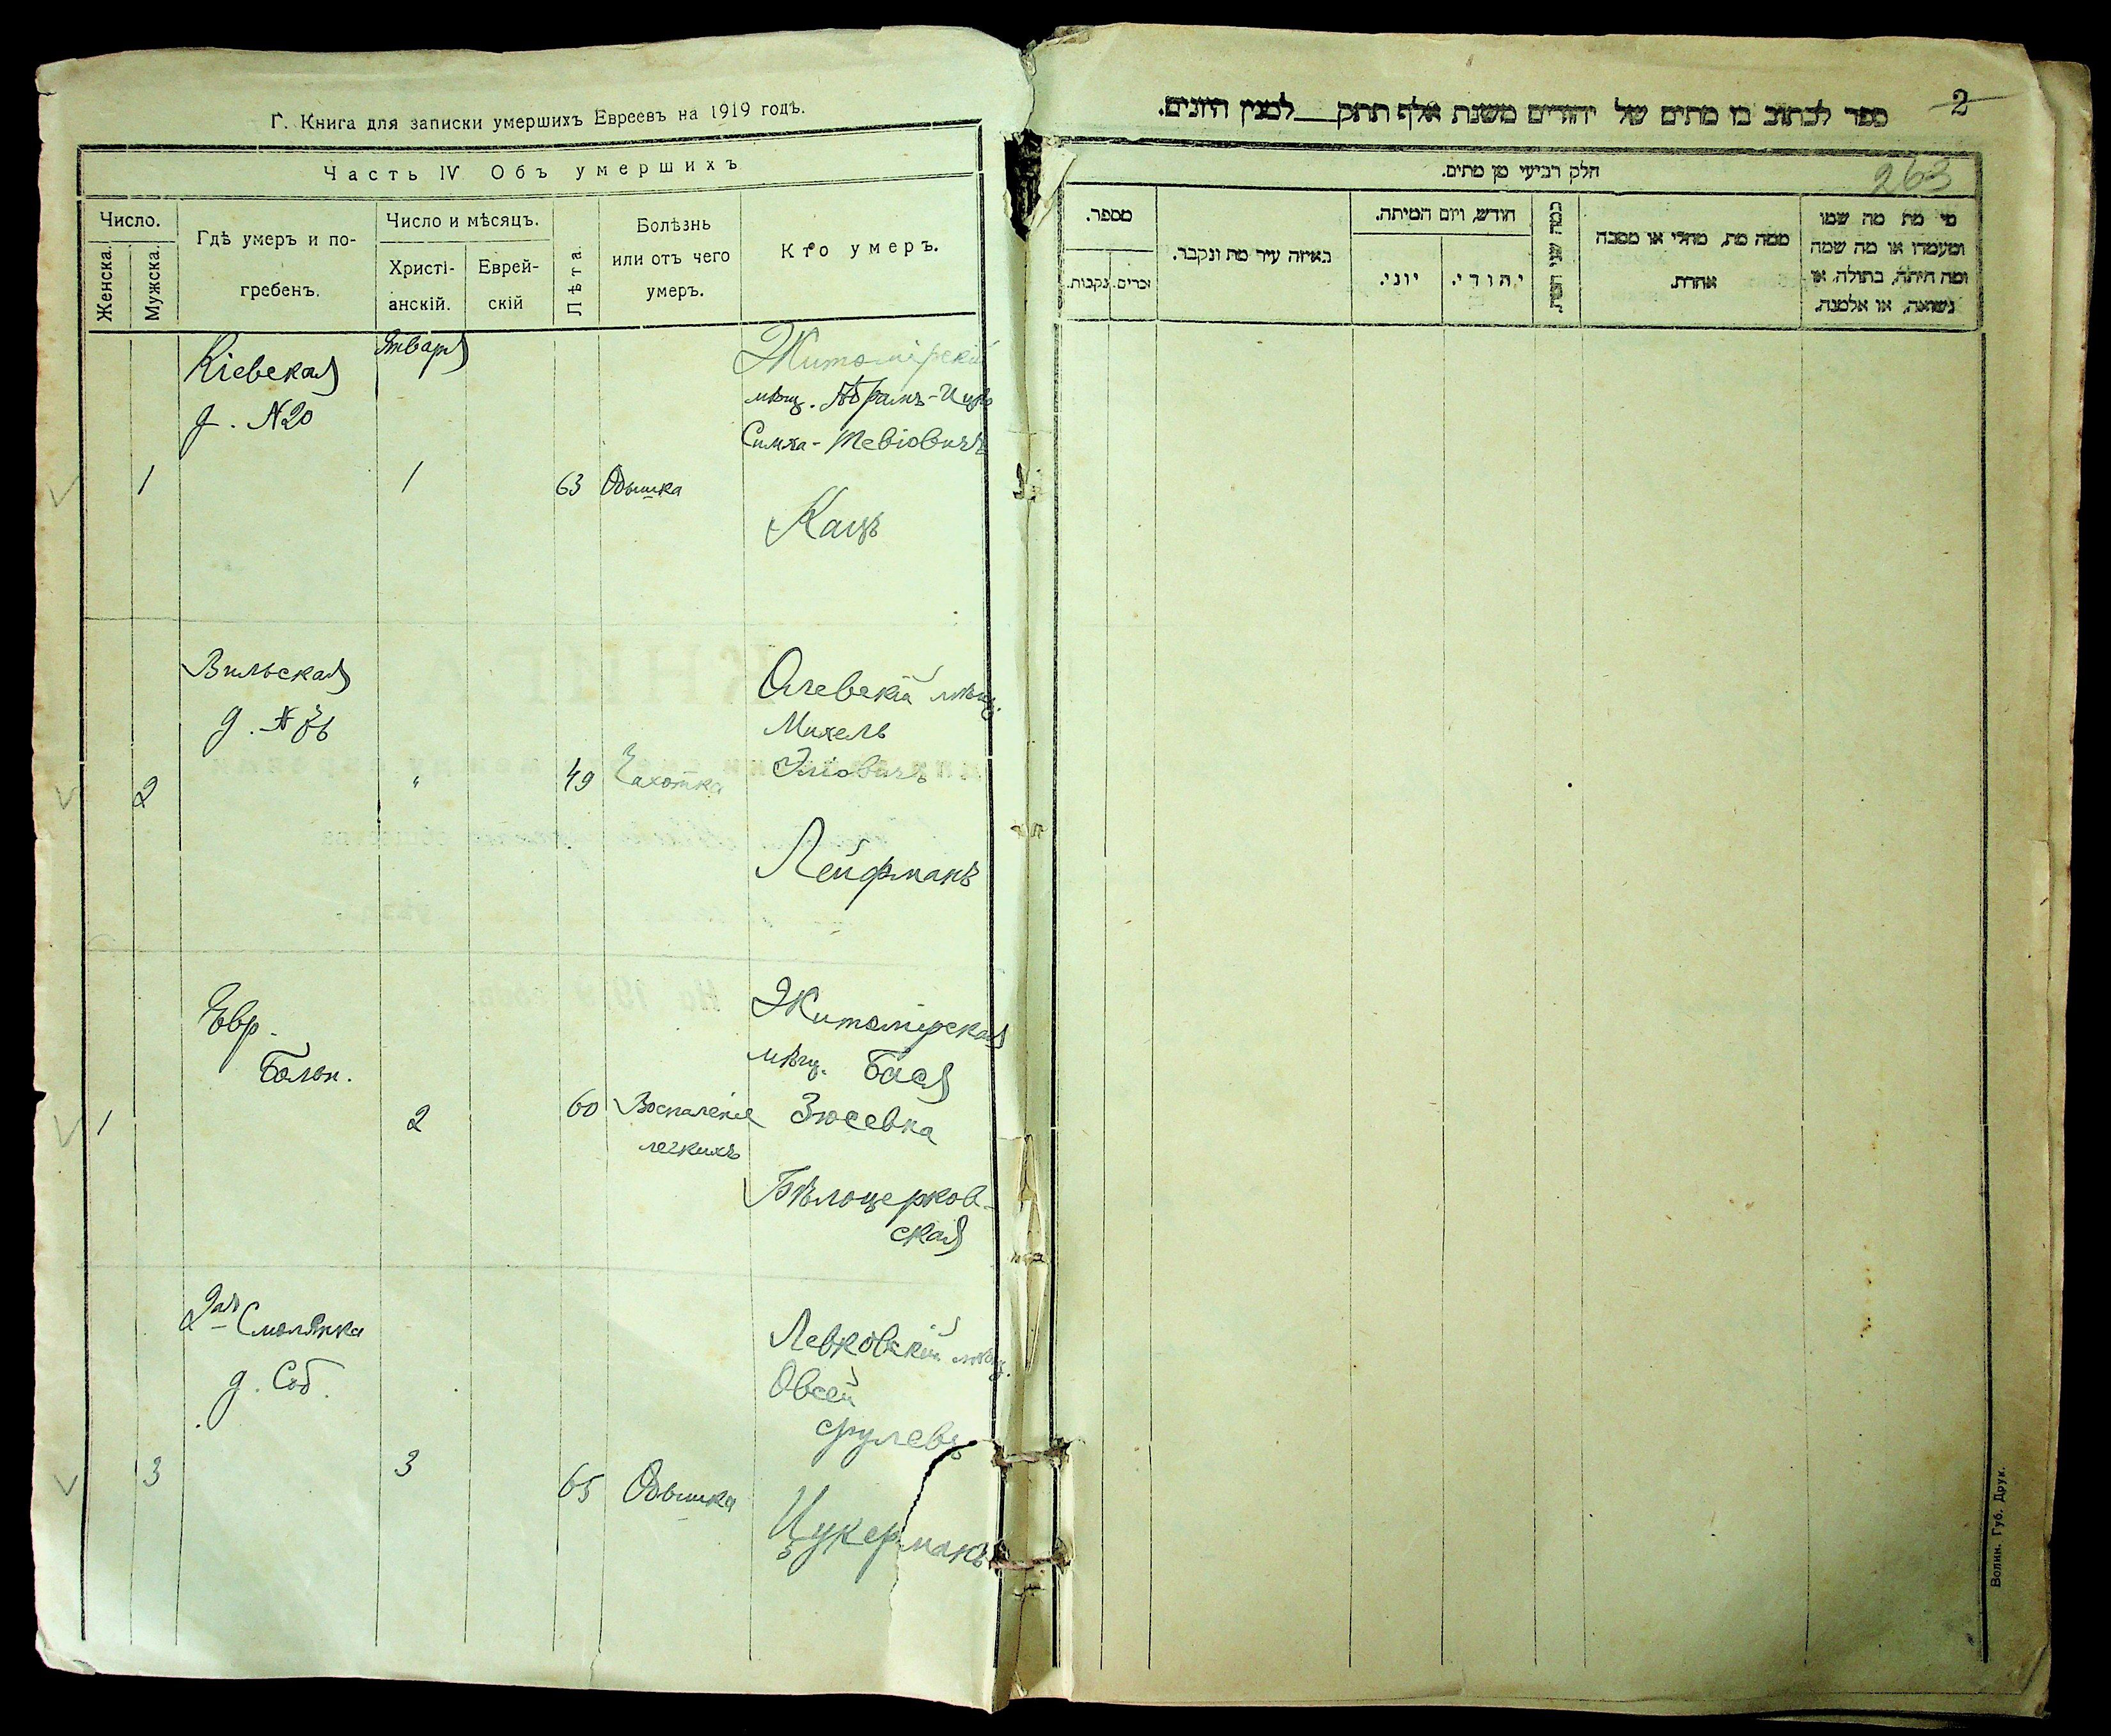 Г. Книга для записки умершихъ Евреевъ на 1919 годъ.
Часть IV Объ умершихъ
Число.
Женска.
Мужска.
Гдѣ умеръ и по-
гребенъ.
Число и мѣсяцъ.
Христі-
анскій.
Еврей-
скій
Лѣта
Болѣзнь
или отъ чего
умеръ.
Кто умеръ.
Кіевская
д. №20
Января
Житомірскій
мѣщ. Абрамъ-Ицко
Симха-Тевіовичъ
1
1
63
Одышка
Кацъ
Вильская
д. №
Олевскій мѣщ.
Михель
2
"
49
Чахотка
Эліовичъ
Лейфманъ
Евр.
Больн.
Житомірская
мѣщ. Бася
1
2
60
Воспаленіе
легкихъ
Зюсевна
Бѣлоцерков-
ская
2ая Смолянка
д. Соб.
Левковскій мѣщ.
Овсей
Срулевъ
3
3
65
Одышка
Цукерманъ
2
ספר לכתוב בו מתים של יהודים משנת אלף תתק___למנין היונים.
263
חלק רביעי מן מתים.
מספר.
זכרים.
נקבות.
באיזה עיר מת ונקבר.
חודש, ויום המיתה.
יוני.
יהודי.
כמה שני המת.
ממה מת, מחלי או מסבה
אחרת.
מי מת מה שמו
ומעמדו או מה שמה
ומה היתה, בתולה, או
נשואה, או אלמנה.
Волин. Губ. Друк.